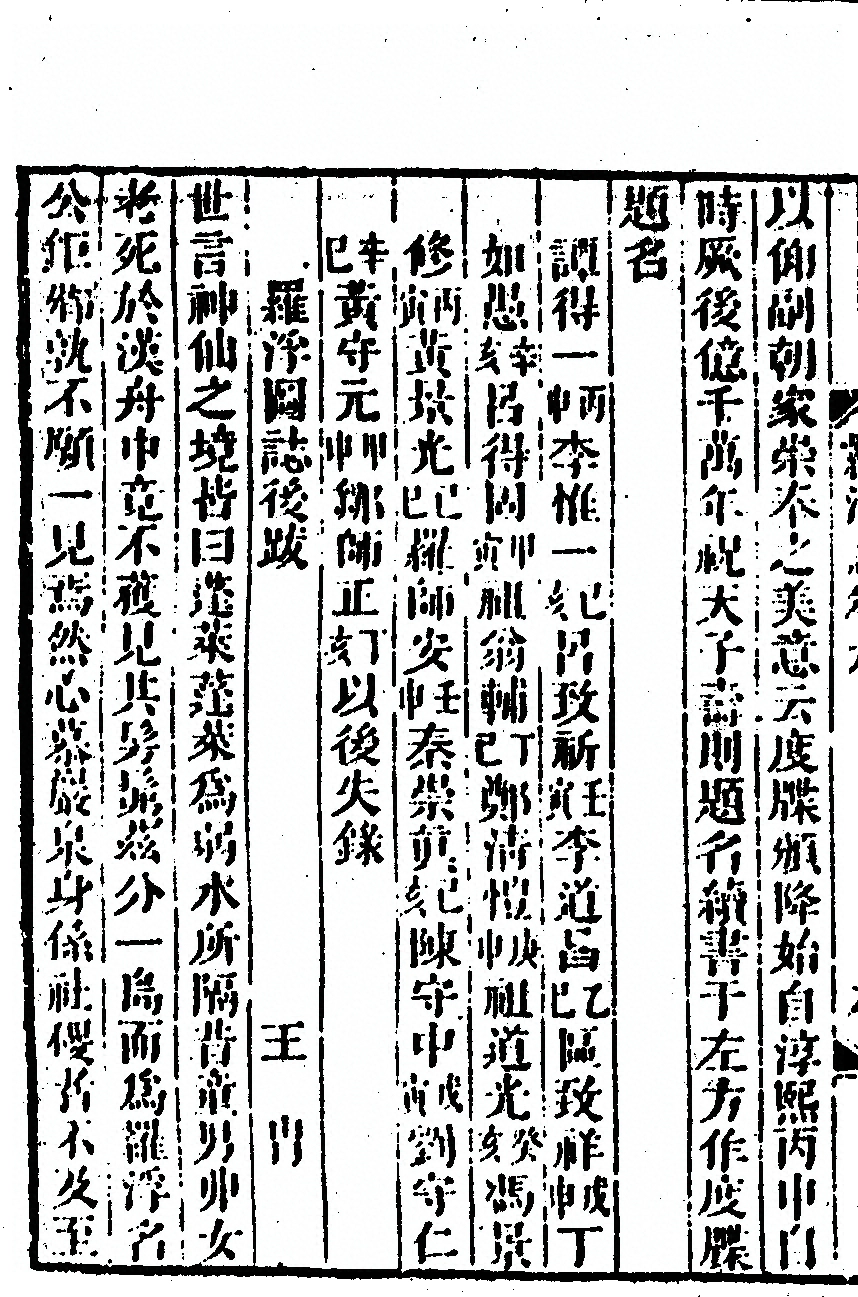 以仰副朝家崇奉之美意云度牒頒降始自淳熙丙申自
時厥後億千萬年祝天子壽則題名續書于左方作度牒
題名
譚得一丙申李惟一己亥呂致祈壬寅李道旨乙巳區致祥戊申丁
如愚辛亥呂得固甲寅祖翁輔丁巳鄭清愷庚申祖道光癸亥馮景
修丙寅黃景光己巳羅師安壬申秦崇黃己亥陳守中戊寅劉守仁
辛巳黃守元甲申鄒師正丁亥以後失錄
羅浮圖誌後跋 王胄
世言神仙之境皆曰蓬萊蓬萊爲弱水所隔昔童男丱女
老死於漢舟中竟不獲見其髣髴茲分一島而爲羅浮名
公鉅卿孰不願一見焉然心慕嚴泉身係社稷者不及至